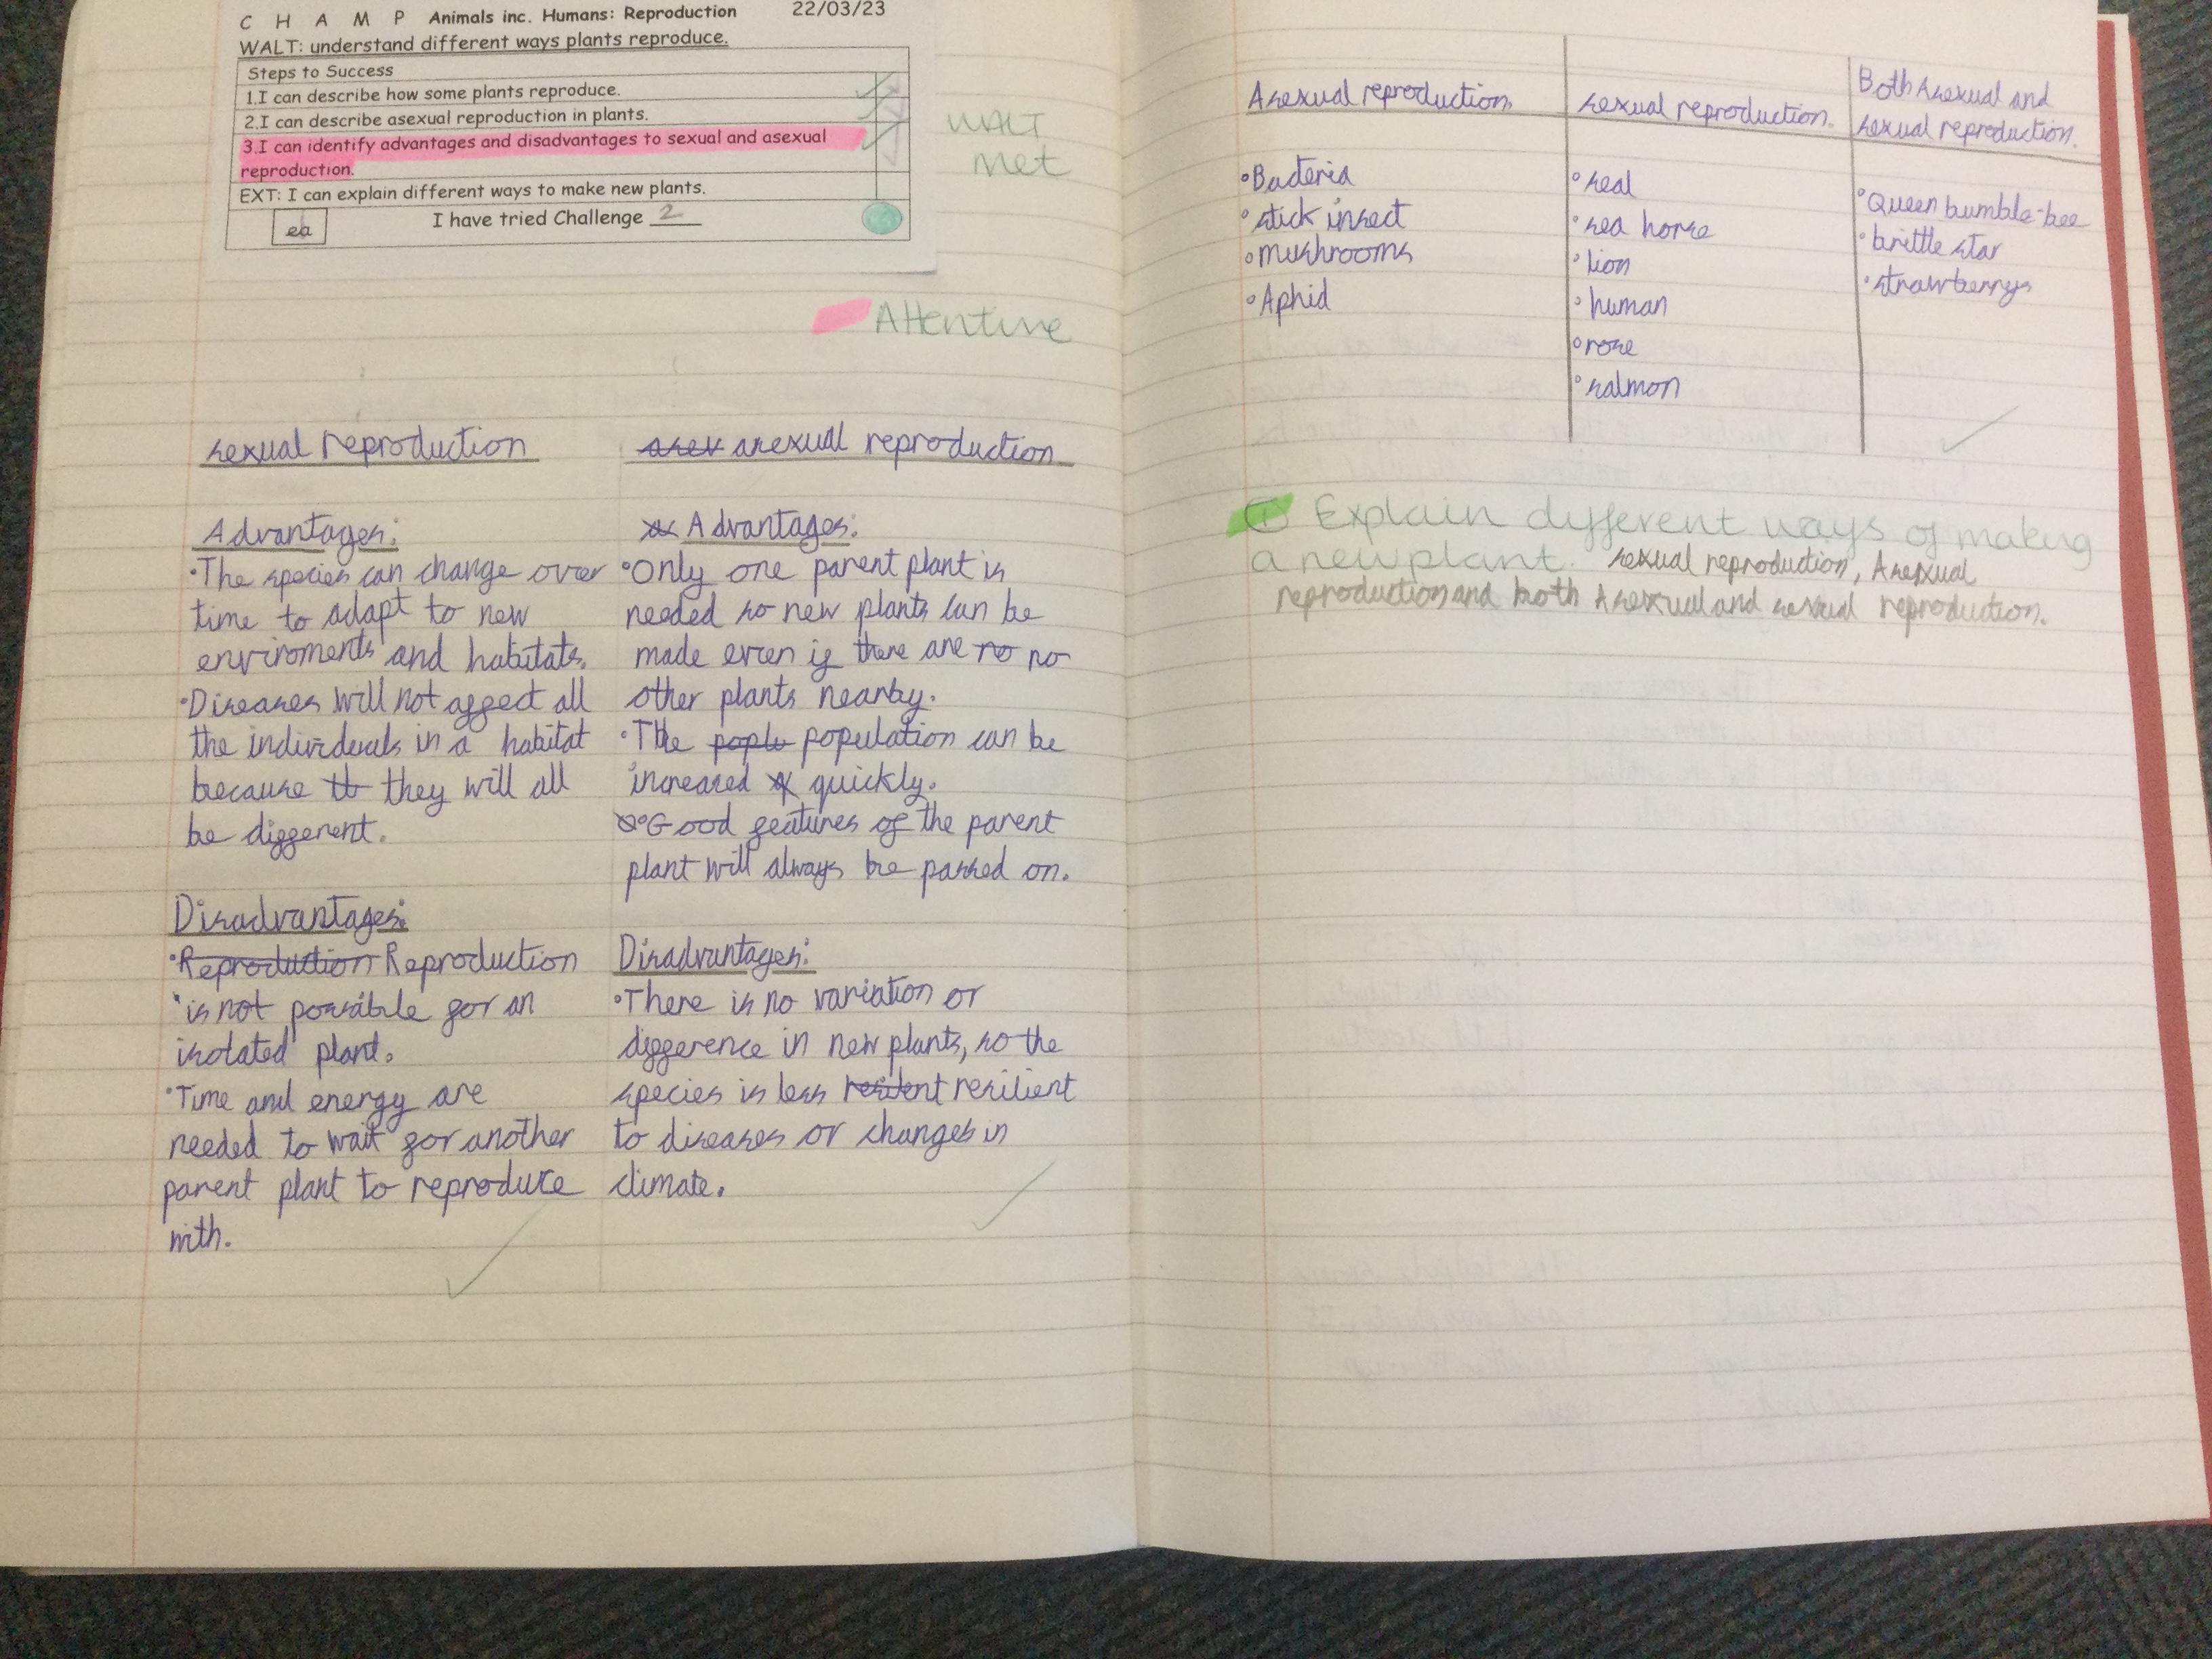 C H A M P Animals inc. Humans: Reproduction 22/03/23
WALT: understand different ways plants reproduce.
Steps to Success
1.I can describe how some plants reproduce.
2.I can describe asexual reproduction in plants.
3.I can identify advantages and disadvantages to sexual and asexual
reproduction.
EXT: I can explain different ways to make new plants.
ea I have tried Challenge 2
WALT
met
Attentive
sexual reproduction
Advantages:
•The species can change over
time to adapt to new
enviroments and habitats.
•Diseases will not affect all
the individuals in a habitat
because th they will all
be different.
Disadvantages:
•Reproduction Reproduction
is not possible for an
isolated plant.
•Time and energy are
needed to wait for another
parent plant to reproduce
with.
asex asexual reproduction
Advantages:
•Only one parent plant is
needed so new plants can be
made even if there are no no
other plants nearby.
•The poplu population can be
increased quickly.
•Good features of the parent
plant will always be passed on.
Disadvantages:
•There is no variation or
difference in new plants, so the
species is less resilient
to diseases or changes in
climate.
Asexual reproduction
•Bacteria
•stick insect
•mushrooms
•Aphid
sexual reproduction.
•seal
•sea horse
•lion
•human
•rose
•salmon
Both Asexual and
sexual reproduction.
•Queen bumble-bee
•brittle star
•strawberrys
① Explain different ways of making
a new plant. sexual reproduction, Asexual
reproduction and both Asexual and sexual reproduction.